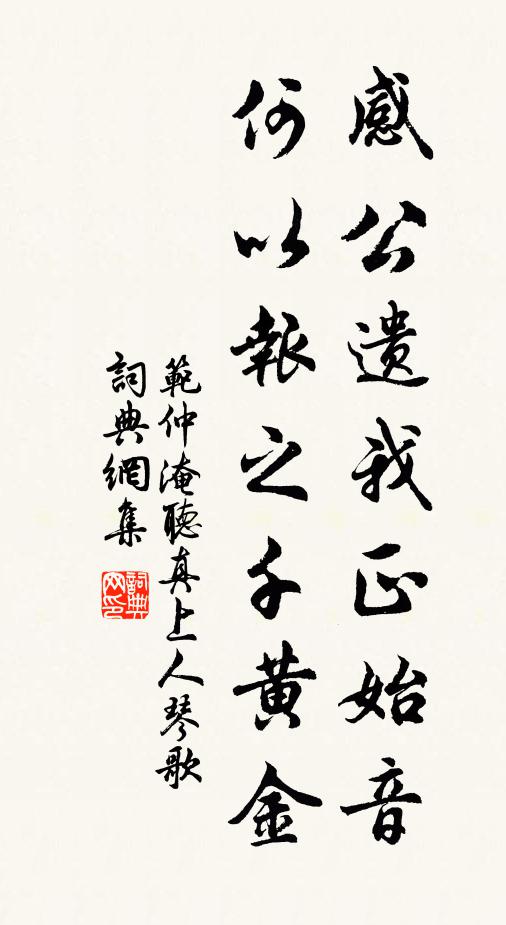 感公遺我正始音
何以報之千黃金
範仲淹聽真上人琴歌
詞典網集
詞典网印